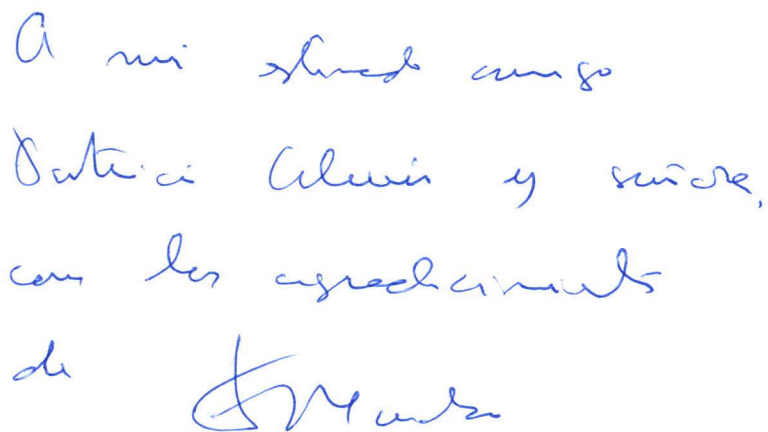 A mi estimado amigo
Patricio y señora,
con los agradecimientos
de